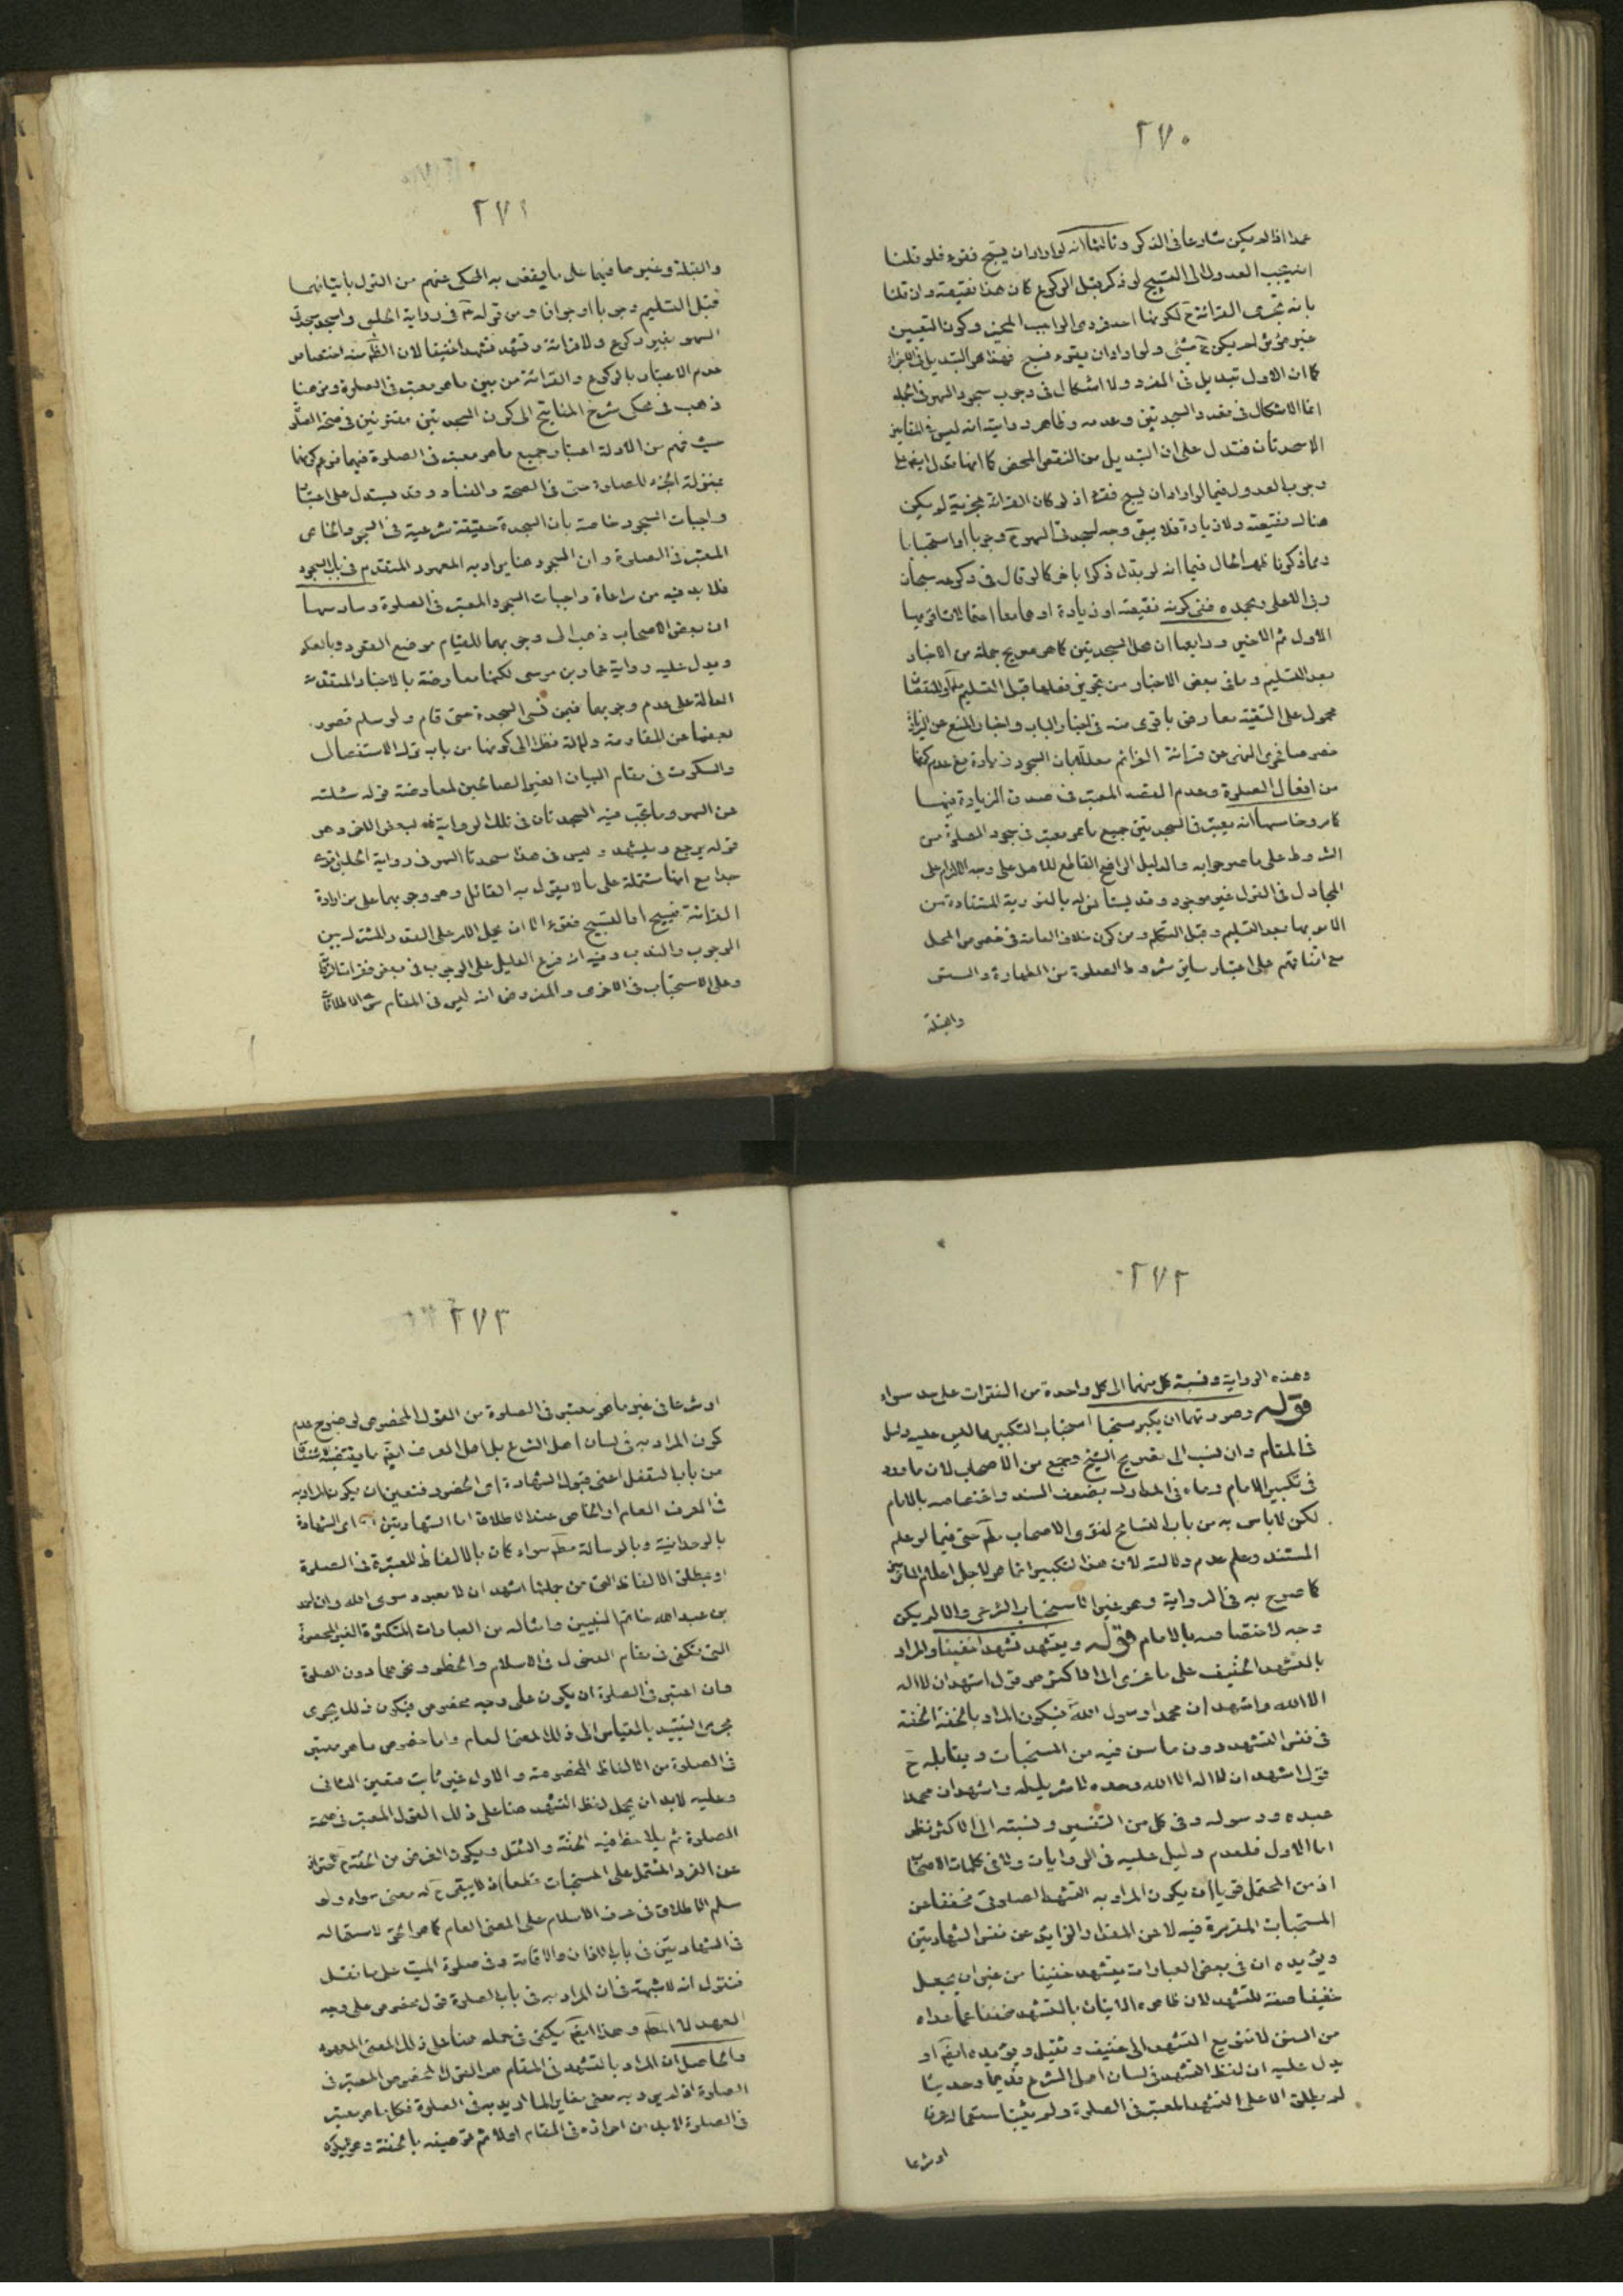 ٢٧٠
عمدا اذا لم يكن شارعا فى الذكر وثالثها انه لو اراد ان يسبّح فقرء فلو قلنا
انه يجب العدول الى التسبيح لو ذكر قبل الركوع كان هذا نقيصة وان قلنا
بانه تجزى القرائة ح لكونها احد فردى الواجب المخير وكون التعيين
غير مؤثر لم يكن ح شئى ولو اراد ان يقرء فسبح فهذا هو التبديل فى الاجزاء
كما ان الاول تبديل فى المفرد ولا اشكال فى وجوب سجود السهو فى الجملة
انما الاشكال فى تعدد السجدتين وعدمه وظاهر رواية انه ليس فى
الا سجدتان فتدل على ان التبديل من النقص المحض كما انها تدل ايضا على
وجوب العدول فيما لو اراد ان يسبح فقرء اذ لو كان القرائة مجزية لم يكن
هناك نقيصة ولا زيادة فلا يبقى وجه لسجدتى السهو ح وجوبا او استحبابا
ومما ذكرنا ظهر الحال فيما انه لو بدل ذكرا باخر كما لو قال فى ركوعه سبحان
ربى الاعلى وبحمده ففى كونه نقيصة او زيادة او هما معا احتمالات اقربها
الاول ثم الاخير ورابعها ان محل السجدتين كما هو صريح جملة من الاخبار
بعد التسليم وما فى بعض الاخبار من تجويز فعلها قبل التسليم
محمول على التقية معارض باقوى منه فى اخبار الباب واخبار المنع عن الزيادة
خصوصا فحوى النهى عن قرائة العزائم معللا بان السجود زيادة مع عدم كونها
من افعال الصلوة وعدم القصد المعتبر فى صدق الزيادة فيها
كما مر وخامسها انه يعتبر فى السجدتين جميع ما هو معتبر فى سجود الصلوة من
الشروط على ما صرحوا به والدليل الواضح القاطع للاصل على وجه الالزام على
المجادل فى القول غير موجود وقد يستانس له بالفورية المستفادة من
الامر بها بعد التسليم وقبل التكلم ومن كون خلاف العامة فى خصوص المحل
مع اتفاقهم على اعتبار سائر شروط الصلوة من الطهارة والستر
والقبلة
٢٧١
والقبلة وغيرها فيها على ما يقضى به المحكى عنهم من القول باتيانهما
قبل التسليم وجوبا او جوازا ومن قوله ع فى رواية الحلبى واسجد سجدتى
السهو بغير ركوع ولا قرائة وتشهد فيهما تشهدا خفيفا لان الظ منه اختصاص
عدم الاعتبار بالركوع والقرائة من بين ما هو معتبر فى الصلوة ومن هنا
ذهب فى محكى شرح المفاتيح الى كون السجدتين معتبرتين فى صحة الصلوة
حيث فهم من الادلة اعتبار جميع ما هو معتبر فى الصلوة فيهما فزعم كونها
بمنزلة الجزء للصلوة حتى فى الصحة والفساد وقد يستدل على اعتبار
واجبات السجود خاصة بان السجدة حقيقة شرعية فى السجود الخاص
المعتبر فى الصلوة وان السجود هنا يراد به المعهود المتقدم فى باب السجود
فلا بد فيه من مراعاة واجبات السجود المعتبر فى الصلوة وسادسها
ان بعض الاصحاب ذهب الى وجوبهما للقيام موضع القعود وبالعكس
ويدل عليه رواية عمار بن موسى لكنها معارضة بالاخبار المتقدمة
الدالة على عدم وجوبهما فيمن نسى السجدة حتى قام ولو سلم قصور
بعضها عن المقاومة دلالة نظرا الى كونها من باب ترك الاستفصال
والسكوت فى مقام البيان لمعارضة قوله سئلته
عن السهو وما يجب فيه السجدتان فى تلك الرواية لبعض اخر وهو
قوله يرجع ويتشهد وليس فى هذا سجدتا السهو فى رواية الحلبى
جدا مع انها مشتملة على ما لا يقول به القائل وهو وجوبهما على من اراد
القرائة فسبح او التسبيح فقرء الا ان يحمل الامر على القدر المشترك بين
الوجوب والندب وفيه ان فرع الدليل على الوجوب فى بعض فقرات الرواية
وعلى الاستحباب فى الاخرى والمفروض انه ليس فى المقام
٢٧٢
وهذه الرواية ونسبة كل منهما الى كل واحدة من الفقرات على حد سواء
قوله وصورتهما ان يكبر مستحبا استحباب التكبير مما ليس عليه دليل
فى المقام وان نسب الى تصريح الشيخ وجمع من الاصحاب لان ما ورد
فى تكبير الامام وماء فى المدارك بضعف السند واختصاصه بالامام
لكن لا باس به من باب التسامح لفتوى الاصحاب حتى فيما لو علم
المستند وعلم عدم دلالته لان هذا التكبير انما هو لاجل اعلام
كما صرح به فى الرواية وهو غير الاستحباب الشرعى والا لم يكن
وجه لاختصاصه بالامام قوله ويتشهد تشهدا خفيفا والمراد
بالتشهد الخفيف على ما عزى الى الاكثر هو قول اشهد ان لا اله
الا الله واشهد ان محمدا رسول الله فيكون المراد بالخفة الخفة
فى نفس التشهد دون ما سن فيه من المستحبات ويقابله ح
قول اشهد ان لا اله الا الله وحده لا شريك له واشهد ان محمدا
عبده ورسوله وفى كل من التفسير ونسبته الى الاكثر نظر
اما الاول فلعدم دليل عليه فى الروايات ولا فى كلمات الاصحاب
اذ من المحتمل قويا ان يكون المراد به التشهد الصلوتى مخففا عن
المستحبات المقررة فيه لا عن القدر الزايد عن نفس الشهادتين
ويؤيده ان فى بعض العبارات يتشهد خفيفا من غير ان يجعل
خفيفا صفة للتشهد لان ظاهره الاتيان بالتشهد مخففا عما عداه
من السنن لا تنويع التشهد الى خفيف وثقيل ويؤيده ايضا او
يدل عليه ان لفظ التشهد فى لسان اهل الشرع قديما وحديثا
لم يطلق الا على التشهد المعتبر فى الصلوة ولم يثبت استعماله عرفا
او شرعا
٢٧٣
او شرعا فى غير ما هو معتبر فى الصلوة من القول المخصوص لوضوح عدم
كون المراد به فى لسان اهل الشرع بل اهل العرف ايضا ما يقتضيه
من باب التفعل اعنى قبول الشهادة اى الحضور فتعين ان يكون المراد به
فى العرف العام او الخاص عند الاطلاق اما الشهادتين اى الشهادة
بالوحدانية وبالرسالة مط سواء كان بالالفاظ المعتبرة فى الصلوة
او بمطلق الالفاظ التى من جملتها اشهد ان لا معبود سوى الله وان احمد
بن عبد الله خاتم النبيين وامثاله من العبارات المتكثرة الغير المحصورة
التى تكفى فى مقام الدخول فى الاسلام ونحوهما دون الصلوة
فان اعتبر فى الصلوة ان يكون على وجه مخصوص فيكون ذلك يجرى
مجرى التقييد بالقياس الى ذلك المعنى العام واما خصوص ما هو معتبر
فى الصلوة من الالفاظ المخصوصة والاول غير ثابت فتعين الثانى
وعليه لا بد ان يحمل لفظ التشهد هنا على ذلك القول المعتبر فى صحة
الصلوة ثم يلاحظ فيه الخفة والثقل ويكون الغرض من الخفة
عن الفرد المشتمل على المستحبات قطعا اذ لا يبقى ح له معنى سواه ولو
سلم الاطلاق فى عرف الاسلام على المعنى العام كما هو الحق لاستعماله
فى الشهادتين فى باب الاذان والاقامة وفى صلوة الميت على ما نقل
فنقول انه لا شبهة فى ان المراد به فى باب الصلوة قول مخصوص على وجه
العهد لا وهذا ايضا يكفى فى حمله هنا على ذلك المعنى المعهود
والحاصل ان المراد بالتشهد فى المقام هو القول المخصوص المعتبر فى
الصلوة اذ لم يرد به معنى مغاير لما اريد به فى الصلوة فكل ما هو معتبر
فى الصلوة لا بد من احرازه فى المقام اولا ثم توصيفه بالخفة